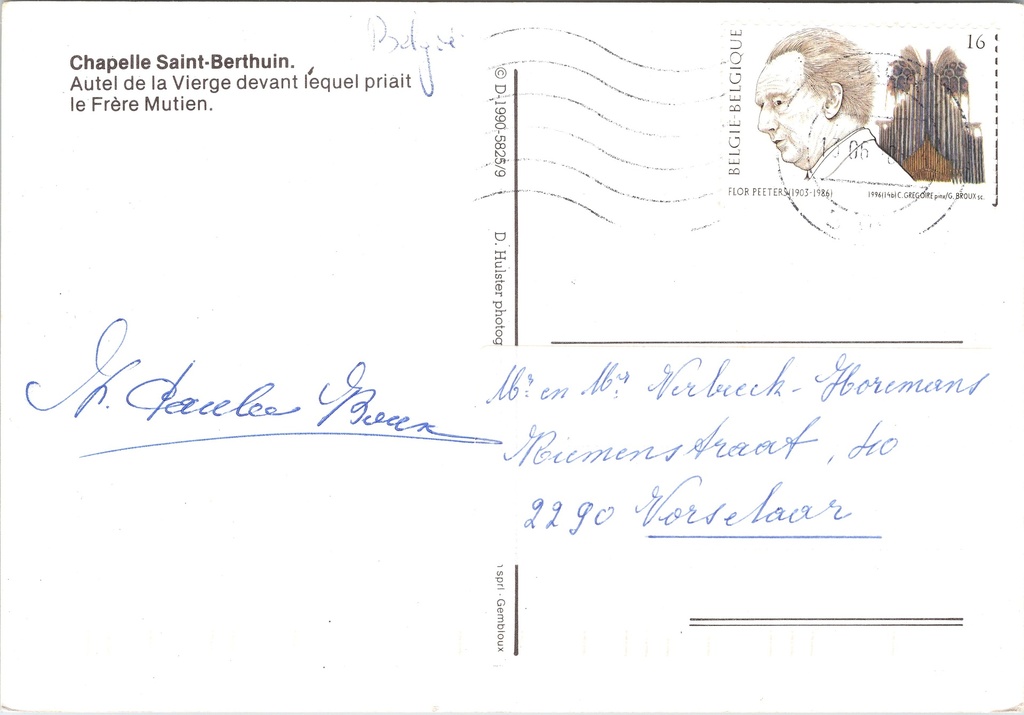 België
Chapelle Saint-Berthuin.
Autel de la Vierge devant lequel priait
le Frère Mutien.
© D-1990-5825/9
D. Hulster photog
sprl - Gembloux
BELGIE-BELGIQUE
16
FLOR PEETERS (1903-1986)
1996(14b) C. GREGOIRE pinx/G. BROUX sc.
13 06
Mr en Mrs Verbeeck-Horemans
Riemenstraat, 40
2290 Vorselaar